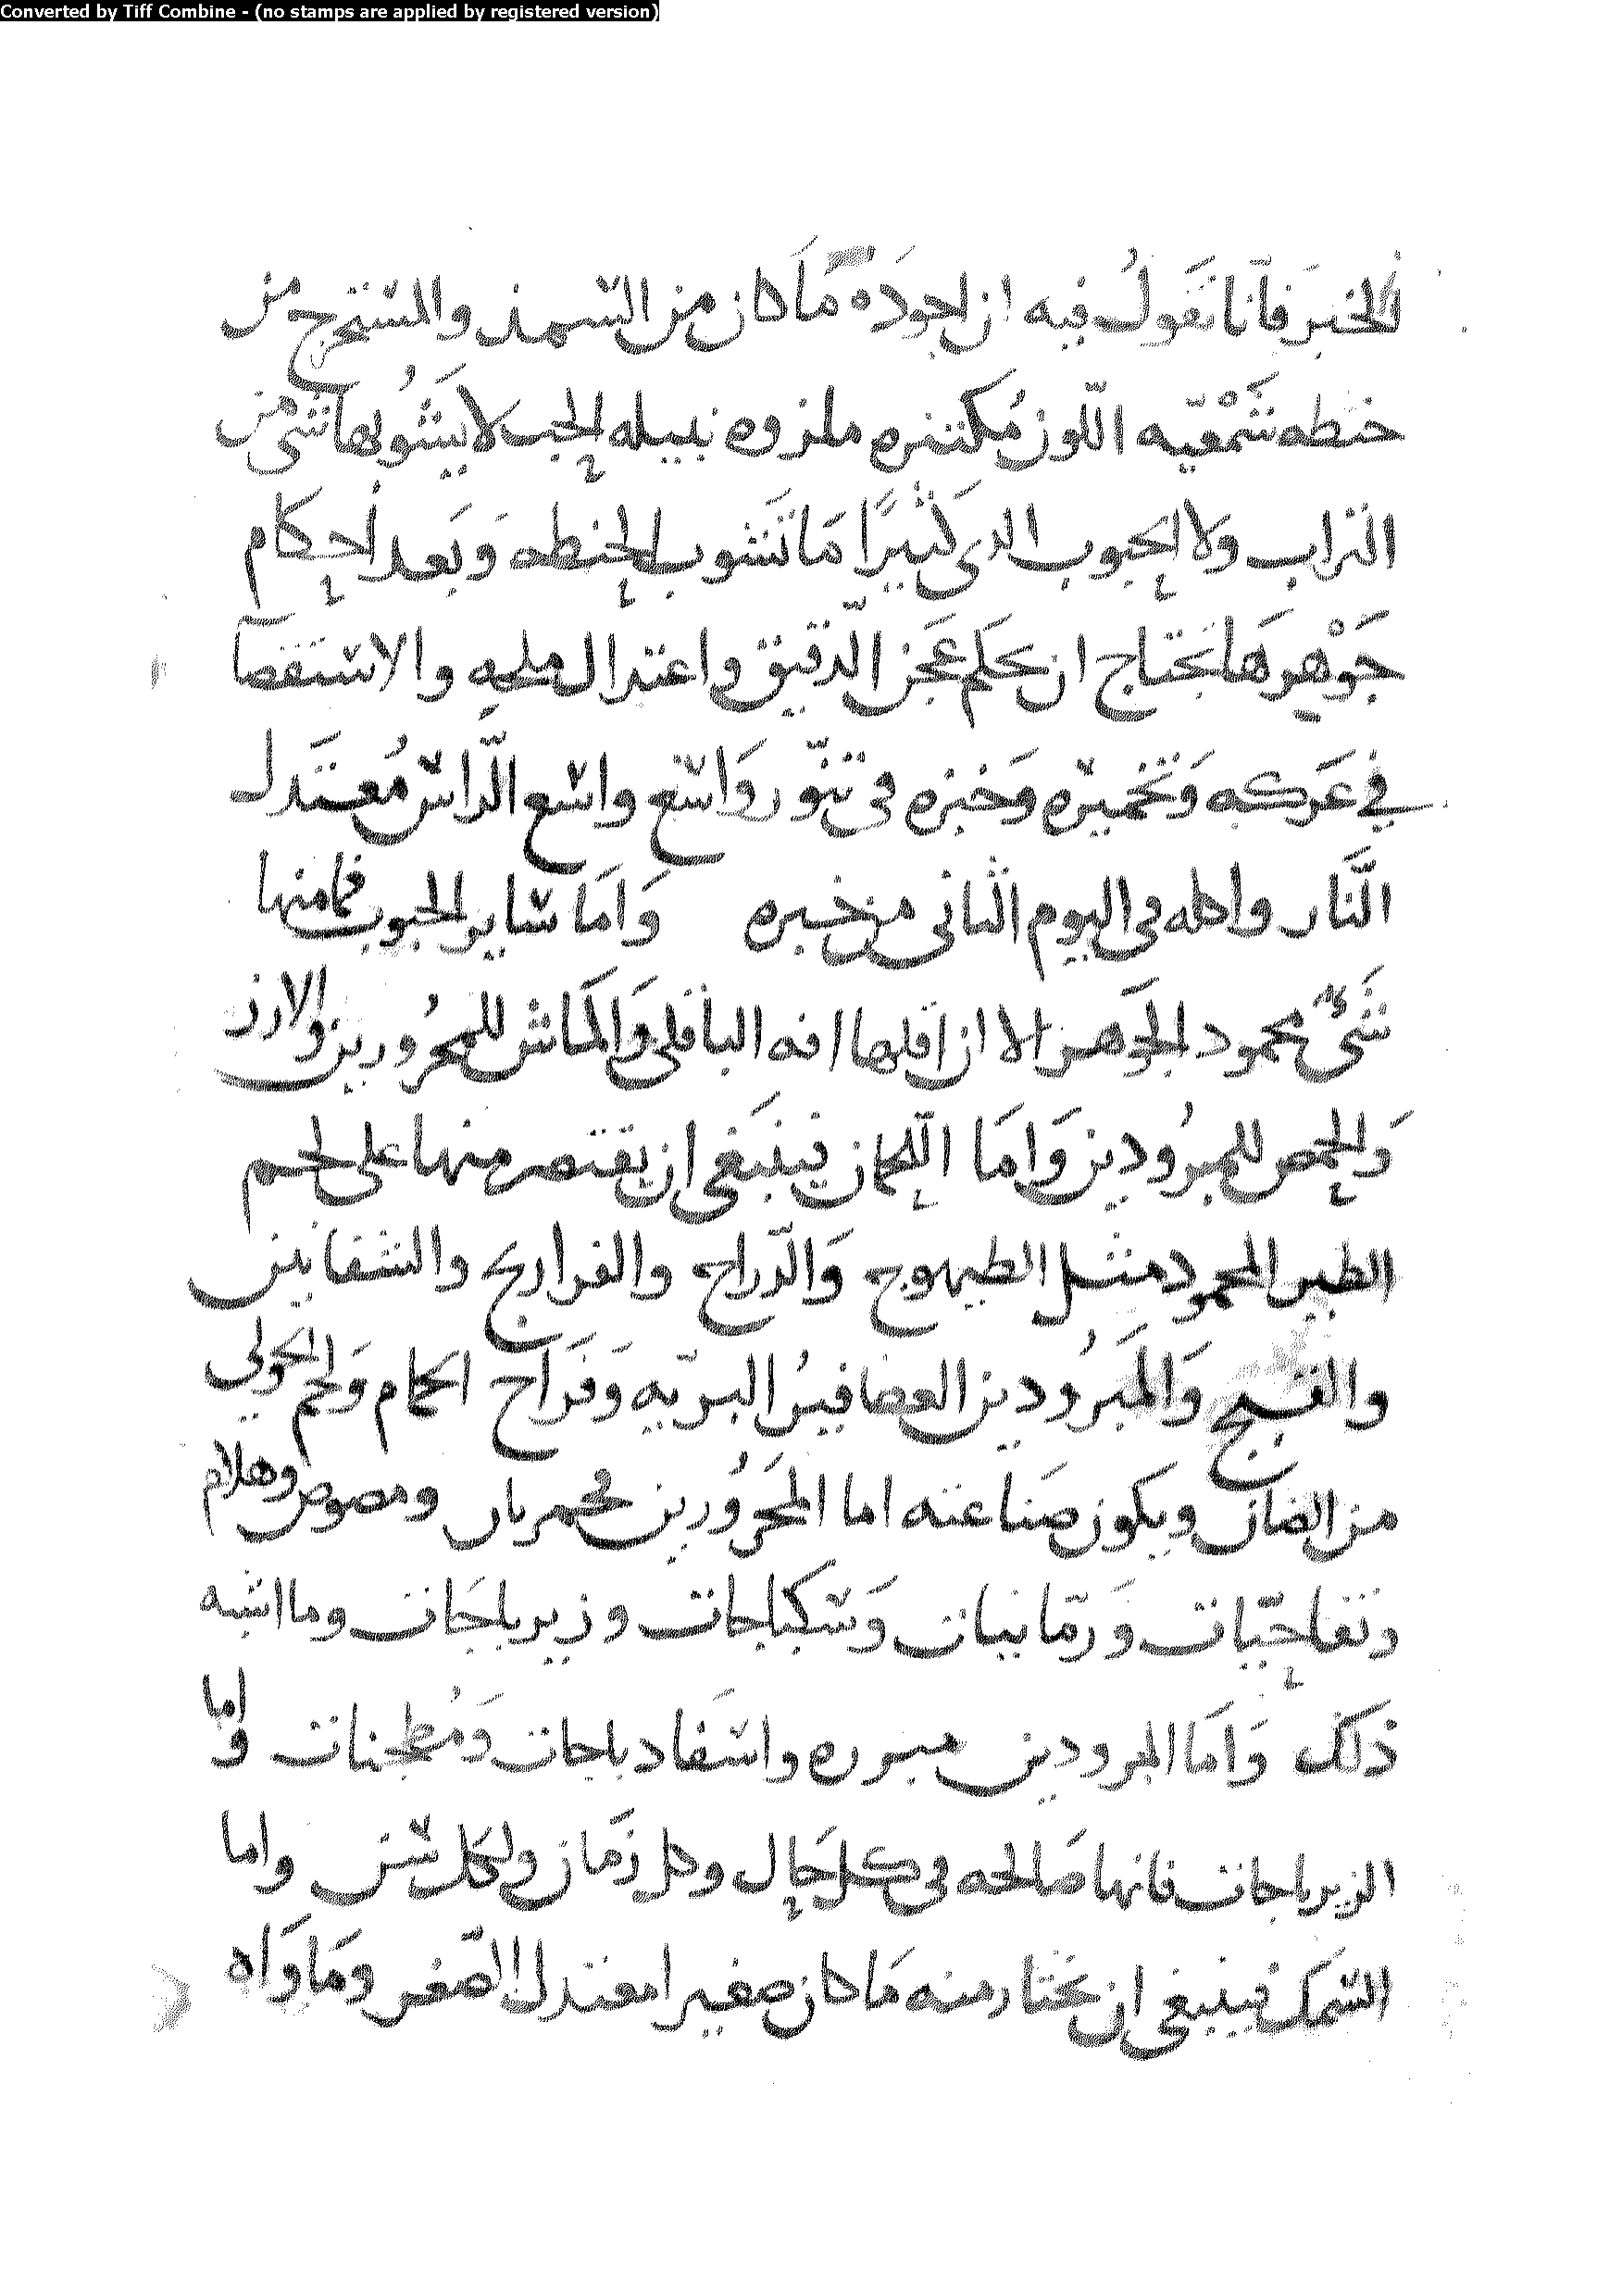 Converted by Tiff Combine - (no stamps are applied by registered version)
فالخبز فانا نقول فيه ان اجوده ما كان من السميذ والمستخرج من
حنطه شمعيه اللون مكتنزه ملززه نبيله الحب لا يشوبها شي من
التراب ولا الحبوب الذي كثيرًا ما تشوب الحنطه وبعد احكام
جوهرها يحتاج ان يحكم عجن الدقيق واعتدال ملحه والاستقصآ
في عركه وتخميره وخبزه في تنّور واسع واسع الرّاس معتدل
النّار واكله في اليوم الثاني من خبزه واما ساير الحبوب فما منها
شىٌ محمود الجوهر الا ان اقلها افه الباقلى والماش للمحرورين والارز
والحمص للمبرودين واما اللحمان فينبغي ان يقتصر منها على لحم
الطير المحمود مثل الطيهوج والدّراج والفراريج والشفانين
والقبج والمبرودين العصافير البريّه وفراخ الحمام ولحم الحولي
من الضان ويكون صناعته اما المحرورين ومصوص وهلام
وتفاحيّات ورمّانيات وسكباجات وزيرباجات وما اشبه
ذلك واما المبرودين واسفادباجات ومطجنات واما
الزيرباجات فانها صالحه في كل حال وكل زمان ولكل سن واما
السّمك فينبغي ان يختار منه ما كان صغيرا معتدل الصّغر وماواه